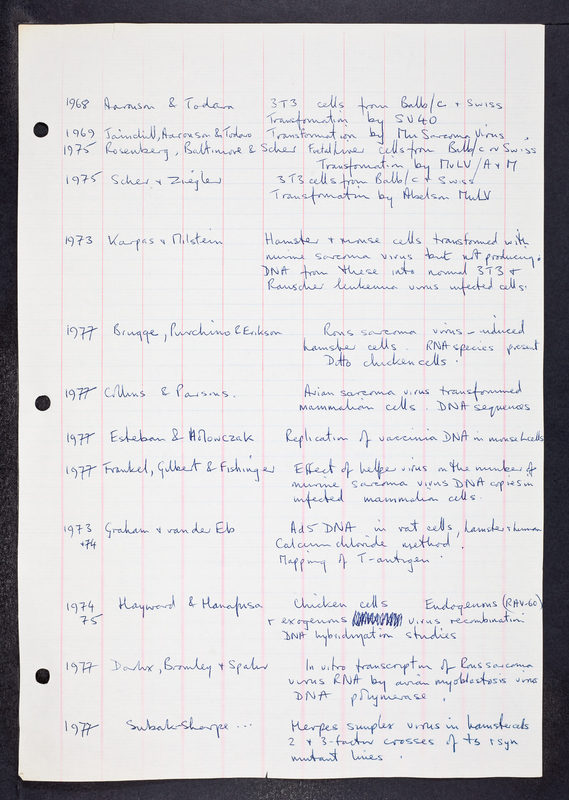 1968 Aaronson & Todaro 3T3 cells from Balb/c + Swiss
Transformation by SV40
1969 Jainchill, Aaronson & Todaro Transformation by Mu Sarcoma Virus,
1975 Rosenberg, Baltimore & Scher Foetal liver cells from Balb/c or Swiss
Transformation by MuLV / A + M
1975 Scher + Ziegler 3T3 cells from Balb/c + Swiss
Transformation by Abelson MuLV
1973 Karpas + Milstein Hamster + mouse cells transformed with
murine sarcoma virus but not producing.
DNA from these into normal 3T3 +
Rauscher leukemia virus infected cells.
1977 Brugge, Purchino & Erikson Rous sarcoma virus - induced
hamster cells. RNA species present
Ditto chicken cells.
1977 Collins & Parsons. Avian sarcoma virus transformed
mammalian cells. DNA sequences
1977 Esteban & Holowczak Replication of vaccinia DNA in mouse L cells
1977 Frankel, Gilbert & Fishinger Effect of helper virus on the number of
murine sarcoma virus DNA copies in
infected mammalian cells.
1973 Graham & van der Eb Ad5 DNA in rat cells, hamster + human
+74 Calcium chloride method.
Mapping of T-antigen.
1974 Hayward & Hanafusa Chicken cells Endogenous (RAV-60)
75 + exogenous virus recombination
DNA hybridization studies
1977 Dahx, Bromley + Spahr In vitro transcription of Rous sarcoma
virus RNA by avian myoblastosis virus
DNA polymerase.
1977 Subak-Sharpe ... Herpes simplex virus in hamster cells
2 + 3-factor crosses of ts + syn
mutant lines.